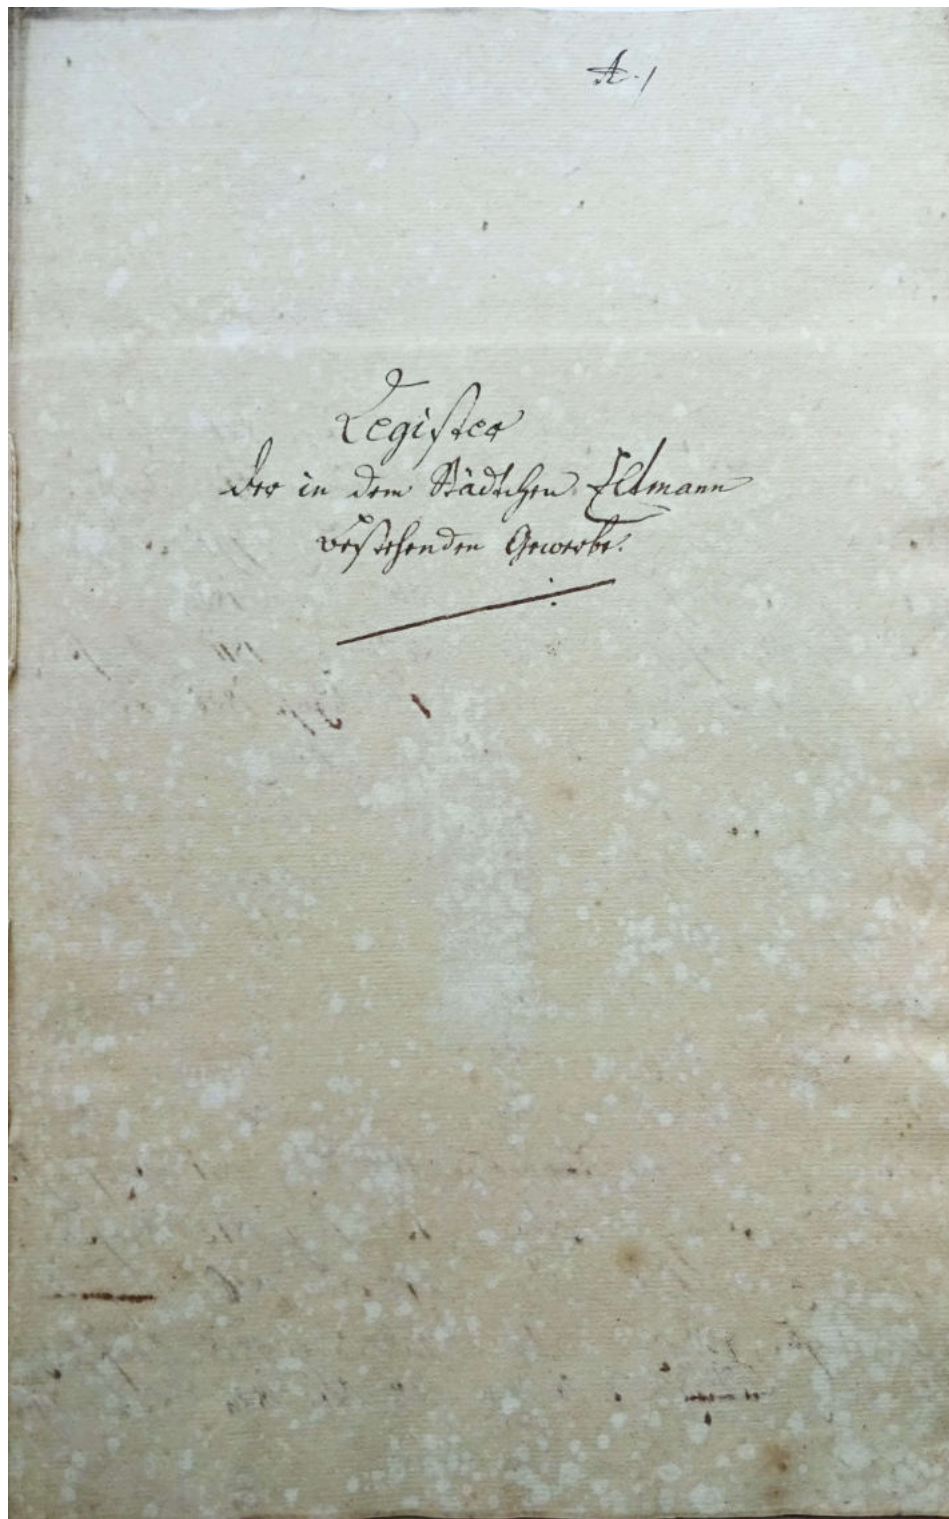 A./
Register
der in dem Städtchen Eltmann
bestehenden Gewerbe.